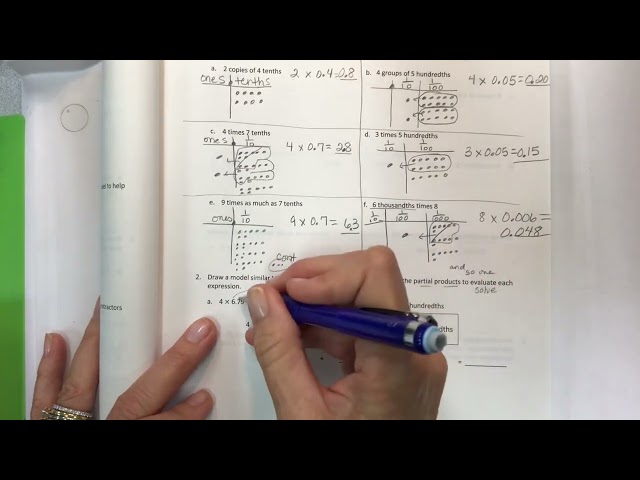 a. 2 copies of 4 tenths
2 x 0.4=0.8
ones tenths
b. 4 groups of 5 hundredths
4 x 0.05=0.20
1/10 1/100
c. 4 times 7 tenths
ones 1/10
4 x 0.7= 2.8
d. 3 times 5 hundredths
1/10 1/100
3 x 0.05=0.15
e. 9 times as much as 7 tenths
ones 1/10
9 x 0.7= 6.3
cont
f. 6 thousandths times 8
1/10 1/100 1/1000
8 x 0.006 =
0.048
and so one
solve
2. Draw a model similar
the partial products to evaluate each
expression.
a. 4 × 6.75
hundredths
4
=
to help